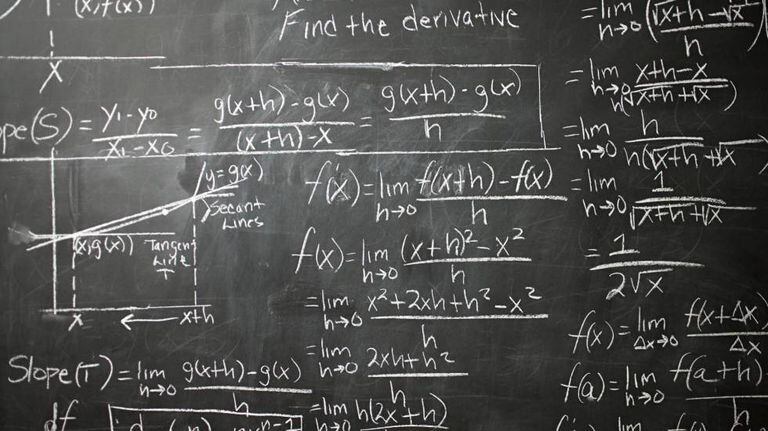 (x, f(x))
x
Find the derivative
ope(S) = y₁-y₀/x₁-x₀ = g(x+h)-g(x)/(x+h)-x = g(x+h)-g(x)/h
y=g(x)
Secant
Lines
(x,g(x))
Tangent
Line
T
x ← x+h
Slope(T) = lim h→0 g(x+h)-g(x)/h
df
f(x) = lim h→0 f(x+h)-f(x)/h
f(x) = lim h→0 (x+h)²-x²/h
= lim h→0 x²+2xh+h²-x²/h
= lim h→0 2xh+h²/h
= lim h→0 h(2x+h)
= lim h→0 (√x+h-√x/h)
= lim h→0 x+h-x/h(√x+h+√x)
= lim h→0 h/h(√x+h+√x
= lim h→0 1/√x+h+√x
= 1/2√x
f(x) = lim Δx→0 f(x+Δx)/Δx
f(a) = lim h→0 f(a+h)